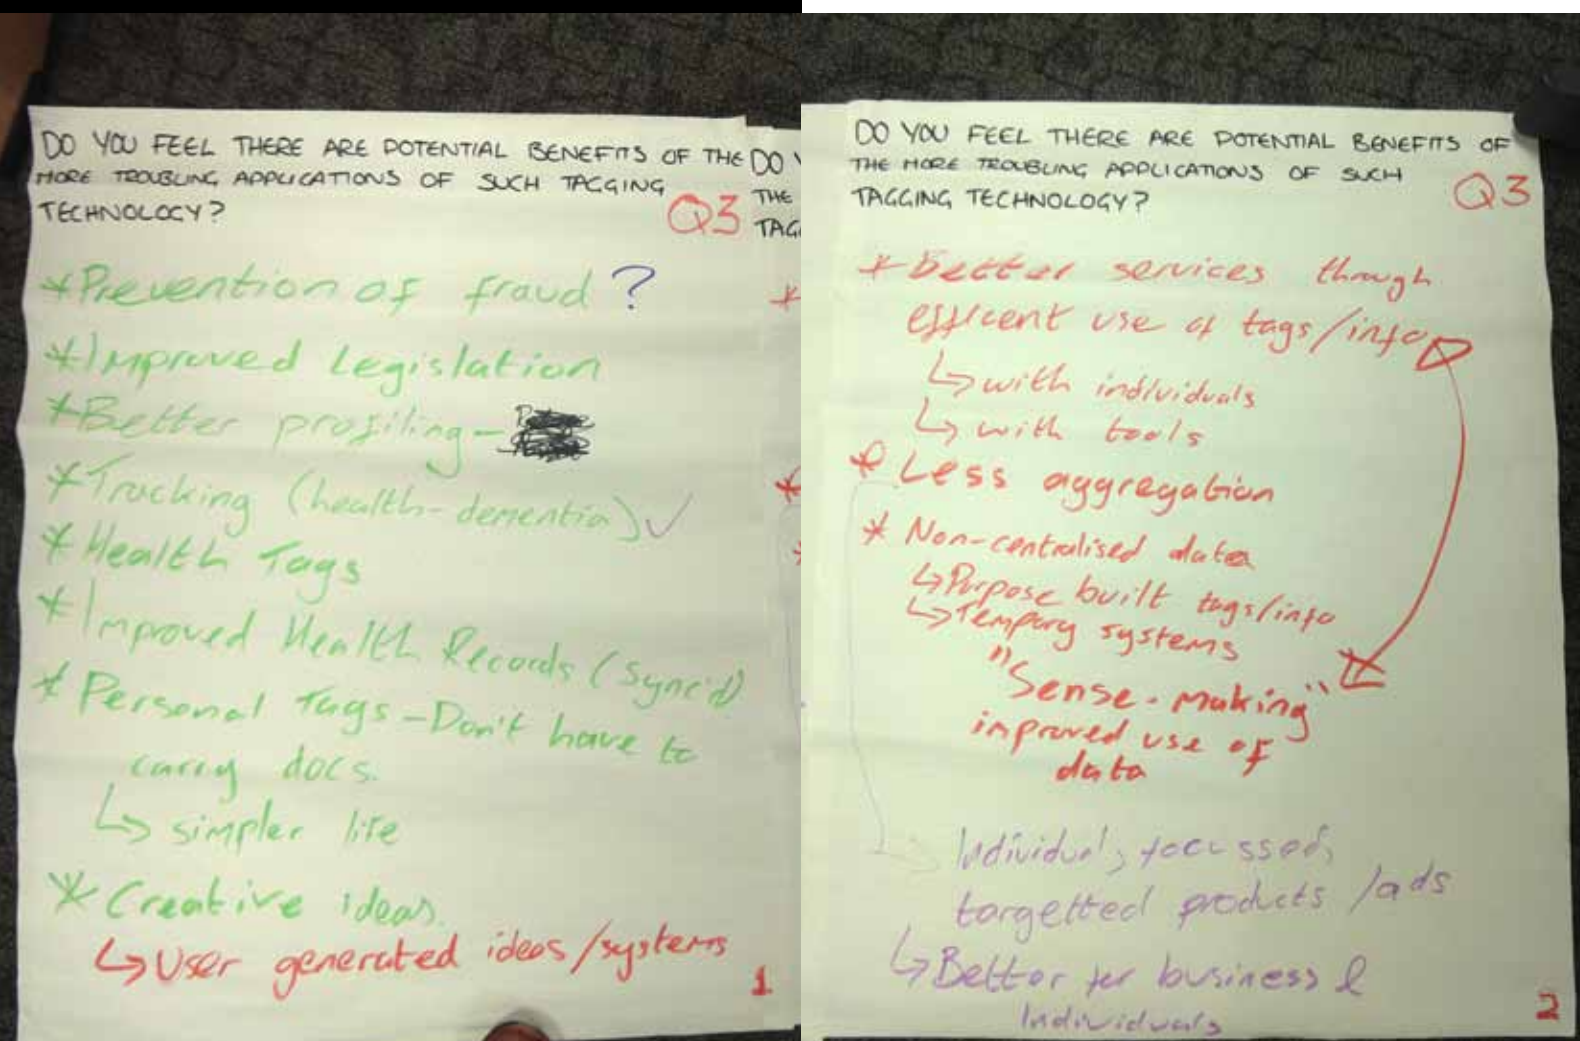 DO YOU FEEL THERE ARE POTENTIAL BENEFITS OF THE
MORE TROUBLING APPLICATIONS OF SUCH TAGGING
TECHNOLOGY?
Q3
*Prevention of fraud ?
*Improved Legislation
*Better profiling -
*Tracking (health-dementia) ✓
*Health Tags
*Improved Health Records (Sync'd)
*Personal Tags - Don't have to
carry docs.
↳ simpler life
*Creative ideas.
↳ User generated ideas/systems
1
DO
THE
TAG
DO YOU FEEL THERE ARE POTENTIAL BENEFITS OF
THE MORE TROUBLING APPLICATIONS OF SUCH
TAGGING TECHNOLOGY?
Q3
* Better services through
efficent use of tags/info
↳ with individuals
↳ with tools
* Less aggregation
* Non-centralised data
↳ Purpose built tags/info
↳ Tempory systems
"Sense-making"
improved use of
data
Individual, focussed,
targetted products /ads
↳ Better for business &
Individuals
2